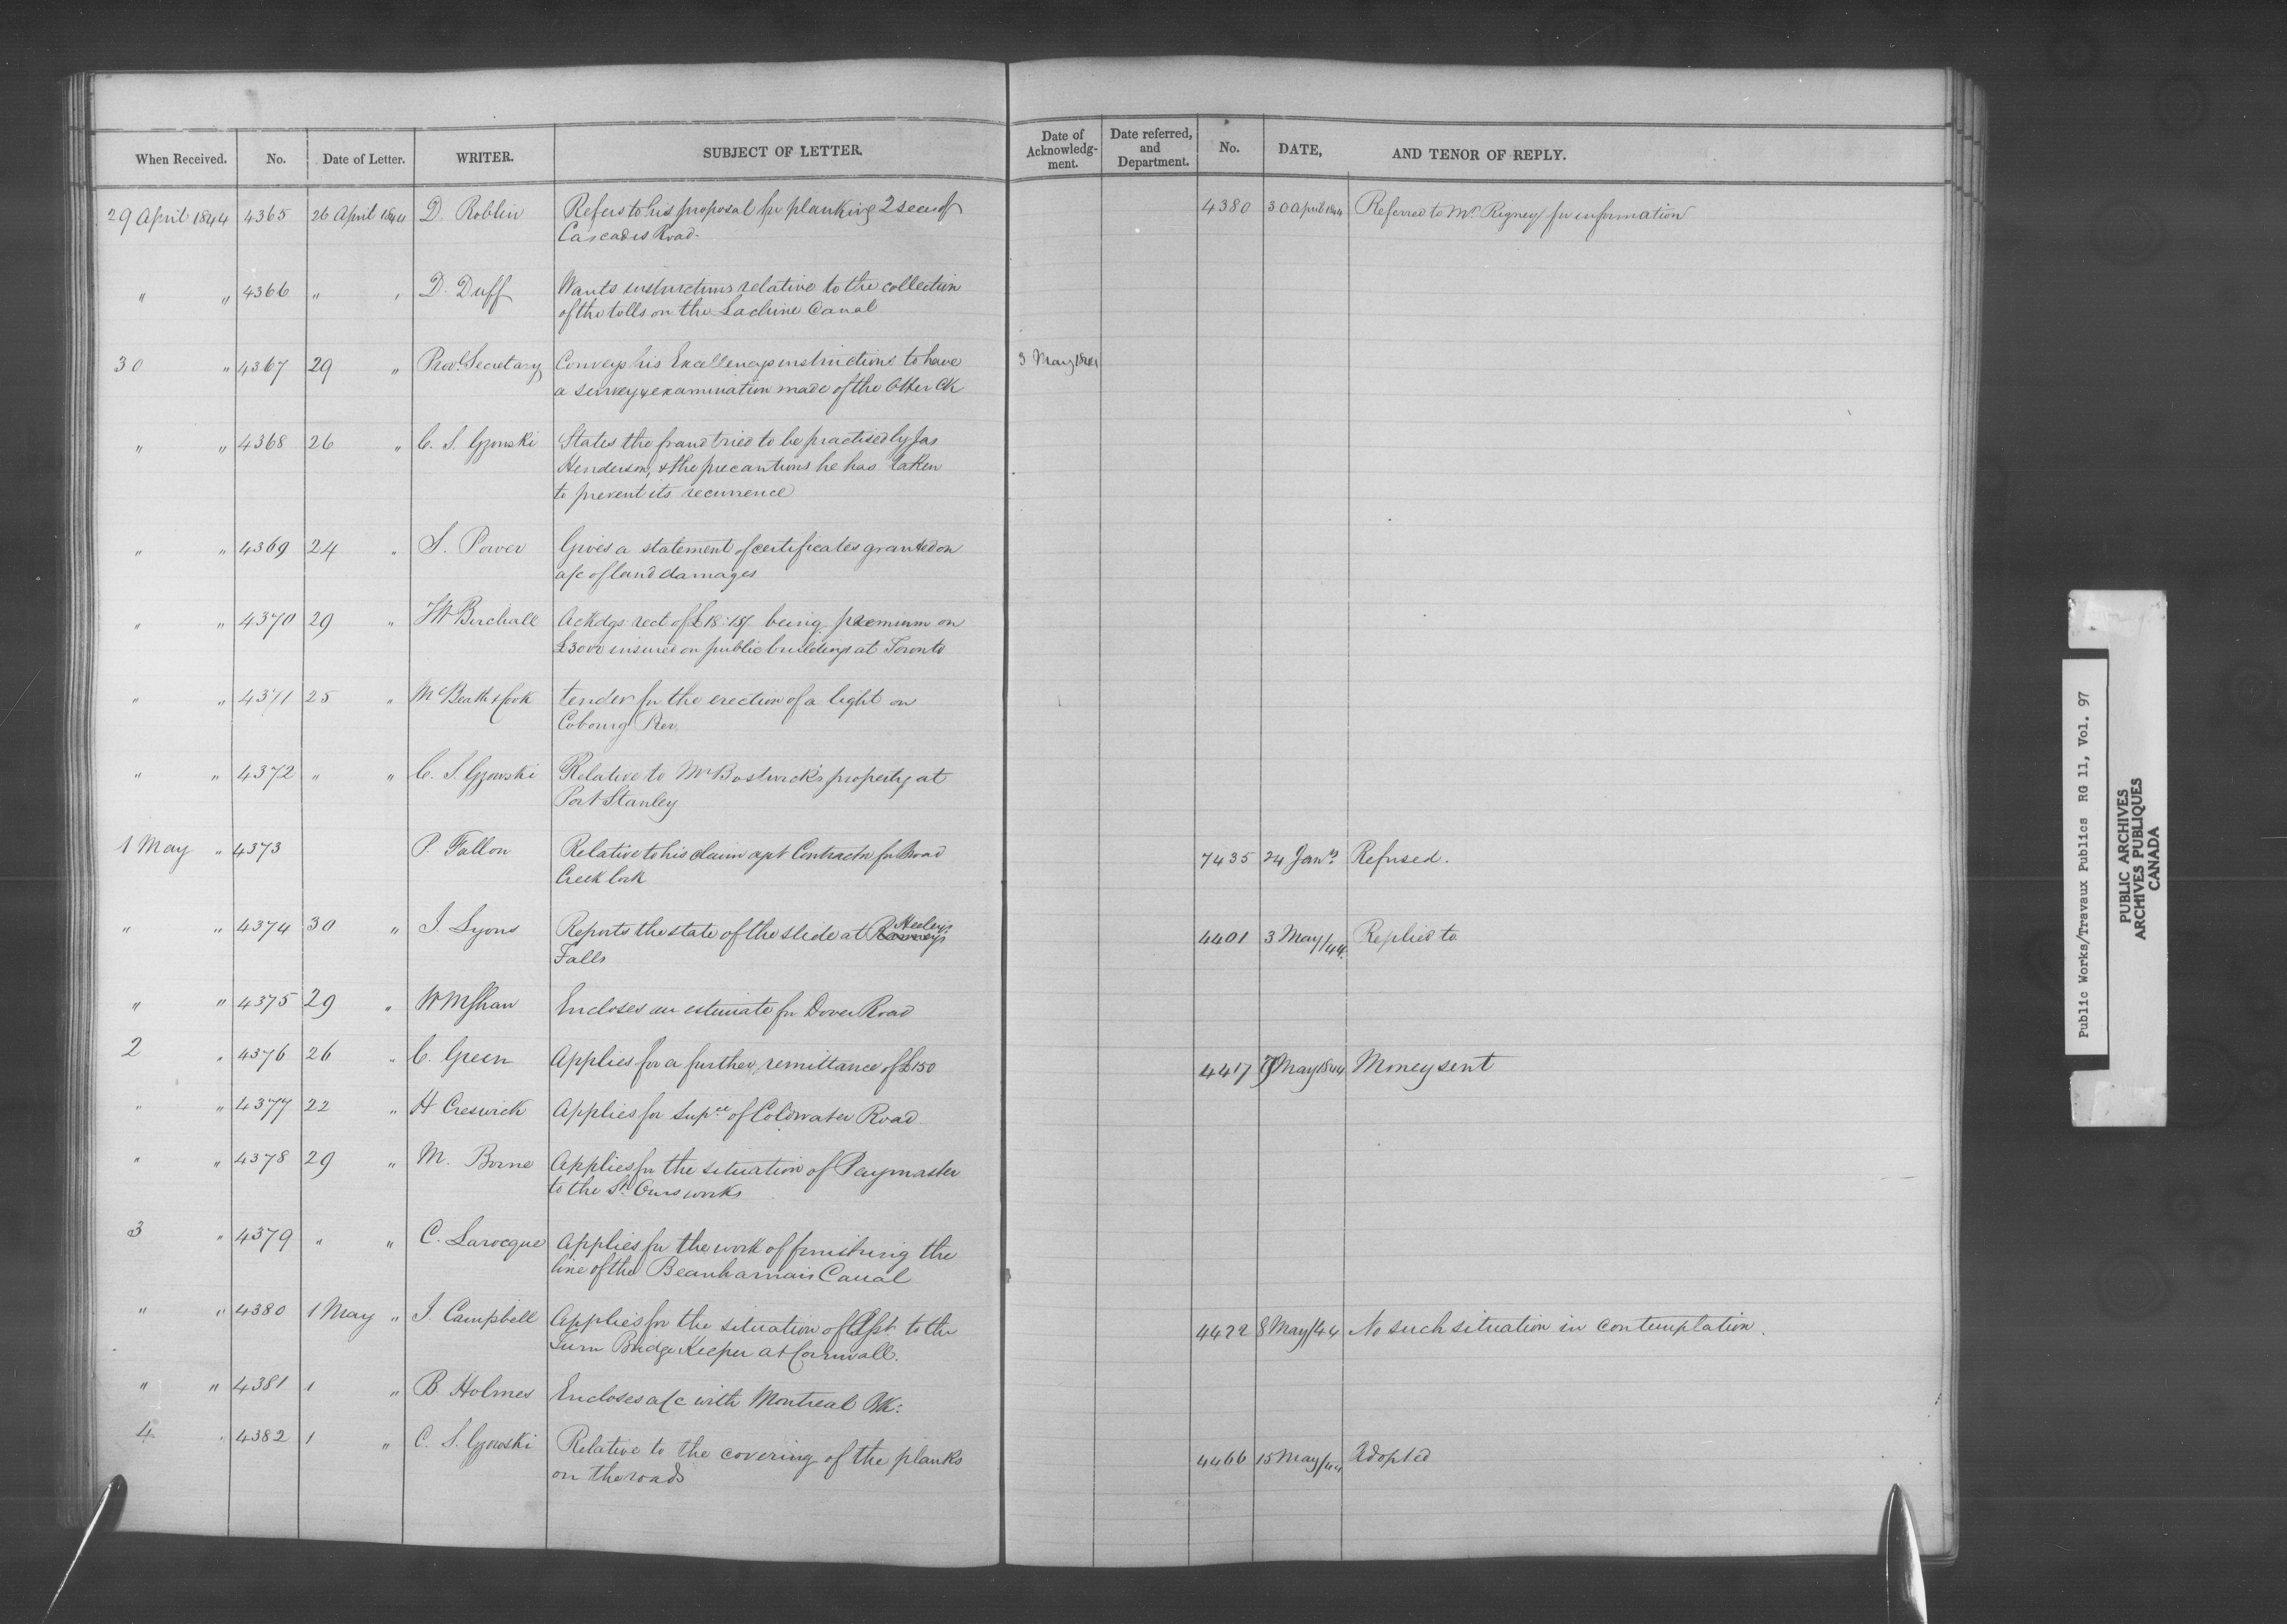 When Received. No. Date of Letter. WRITER. SUBJECT OF LETTER. Date of Acknowledgment. Date referred, and Department. No. DATE, AND TENOR OF REPLY.
29 April 1844 4365 26 April 1844 D. Roblin Refers to his proposal for planking 2 sec of 4380 30 April 1844 Referred to Mr Rigney for information
Cascades Road.
" " 4366 " " D. Duff Wants instructions relative to the collection
of the tolls on the Lachine Canal
30 " 4367 29 " Provl. Secretary Conveys his Excellencys instructions to have 3 May 1844
a survey & examination made of the Otter Ck
" " 4368 26 " C. S. Gzowski States the fraud tried to be practised by Jas
Henderson, & the precautions he has taken
to prevent its recurrence
" " 4369 24 " S. Power Gives a statement of certificates granted on
a/c of land damages
" " 4370 29 " Birchall Ackdgs rect of £18 being premium on
£3000 insured on public buildings at Toronto
" " 4371 25 " McBeath & Cook tender for the erection of a light on
Cobourg Pier.
" " 4372 " " C. S. Gzowski Relative to Mr Bostwick's property at
Port Stanley
1 May " 4373 P. Fallon Relative to his claim agst Contractor for Broad 7435 24 Jany Refused.
Creek lock
" " 4374 30 " J. Lyons Reports the state of the slide at Ranneys Heeleys 4401 3 May/44. Replied to
Falls
" " 4375 29 " W M Shaw Encloses an estimate for Dover Road
2 " 4376 26 " C. Green Applies for a further remittance of £150 4417 7 May 1844 Money sent
" " 4377 22 " H Creswick Applies for Supce of Coldwater Road
" " 4378 29 " M. Borne Applies for the situation of Paymaster
to the St Ours works
3 " 4379 " " C. Larocque Applies for the work of finishing the
line of the Beauharnais Canal
" " 4380 1 May " J. Campbell Applies for the situation of Asst to the 4422 8 May/44 No such situation in contemplation.
Turn Bridge Keeper at Cornwall.
" " 4381 1 " B. Holmes Encloses a/c with Montreal Bk:
4 " 4382 1 " C. S. Gzowski Relative to the covering of the planks 4466 15 May/44 Adopted
on the roads
Public Works/Travaux Publics RG 11, Vol. 97
PUBLIC ARCHIVES
ARCHIVES PUBLIQUES
CANADA